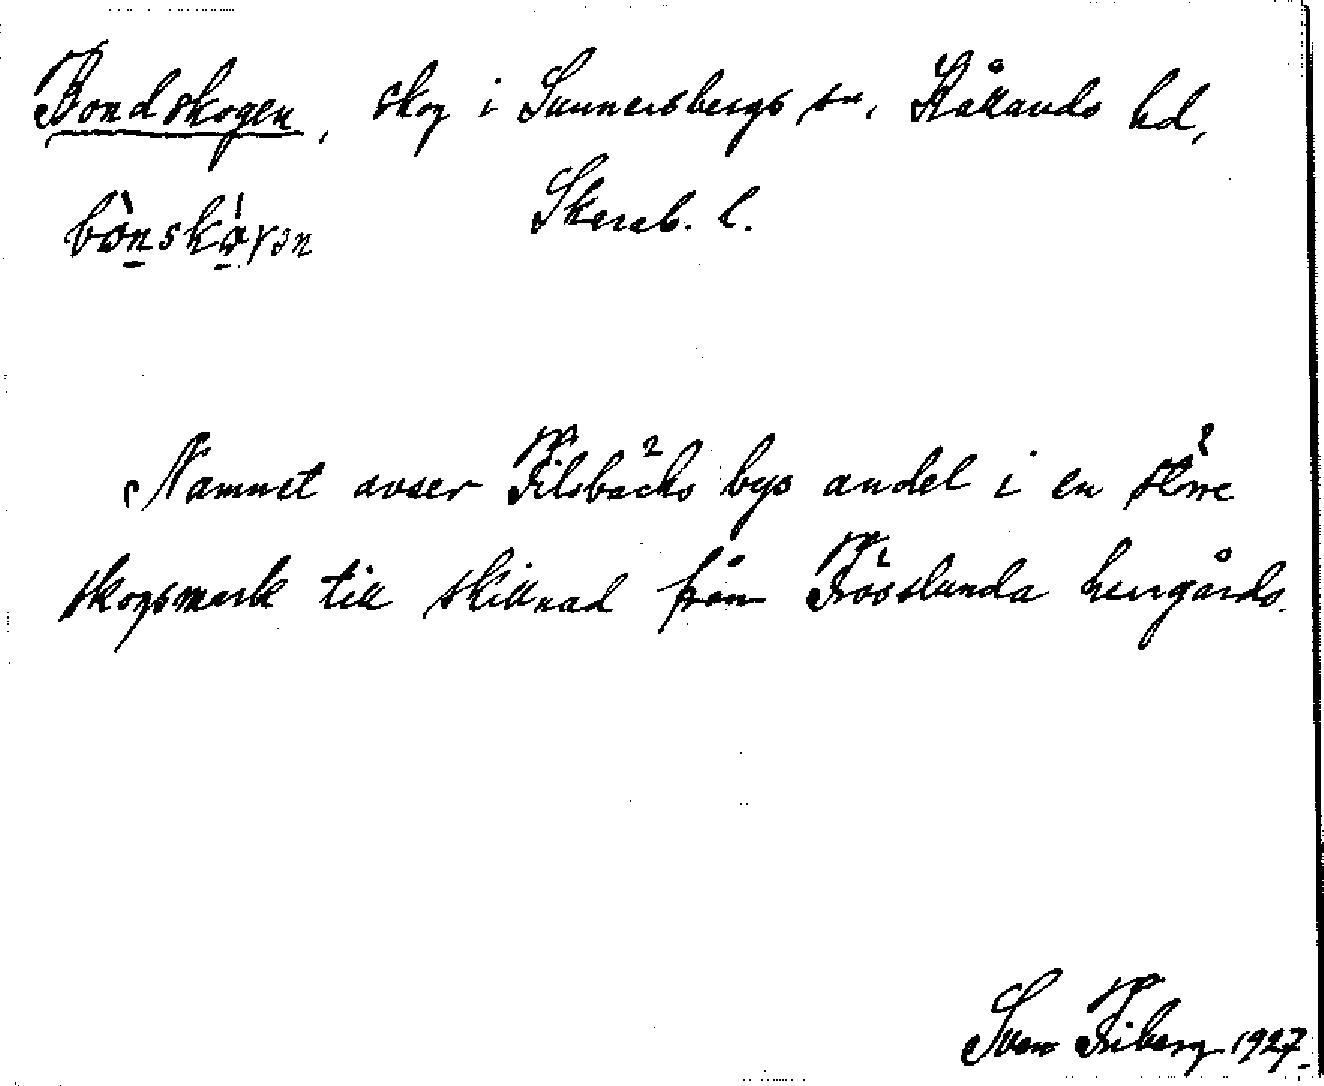 Bondskogen, skog i Sunnersbergs sn, Kållands hd,
bònskóγən Skarab. l.
Namnet avser Filsbäcks bys andel i en större
skogsmark till skillnad från Frösslunda herrgårds.
Sven Friberg 1927.